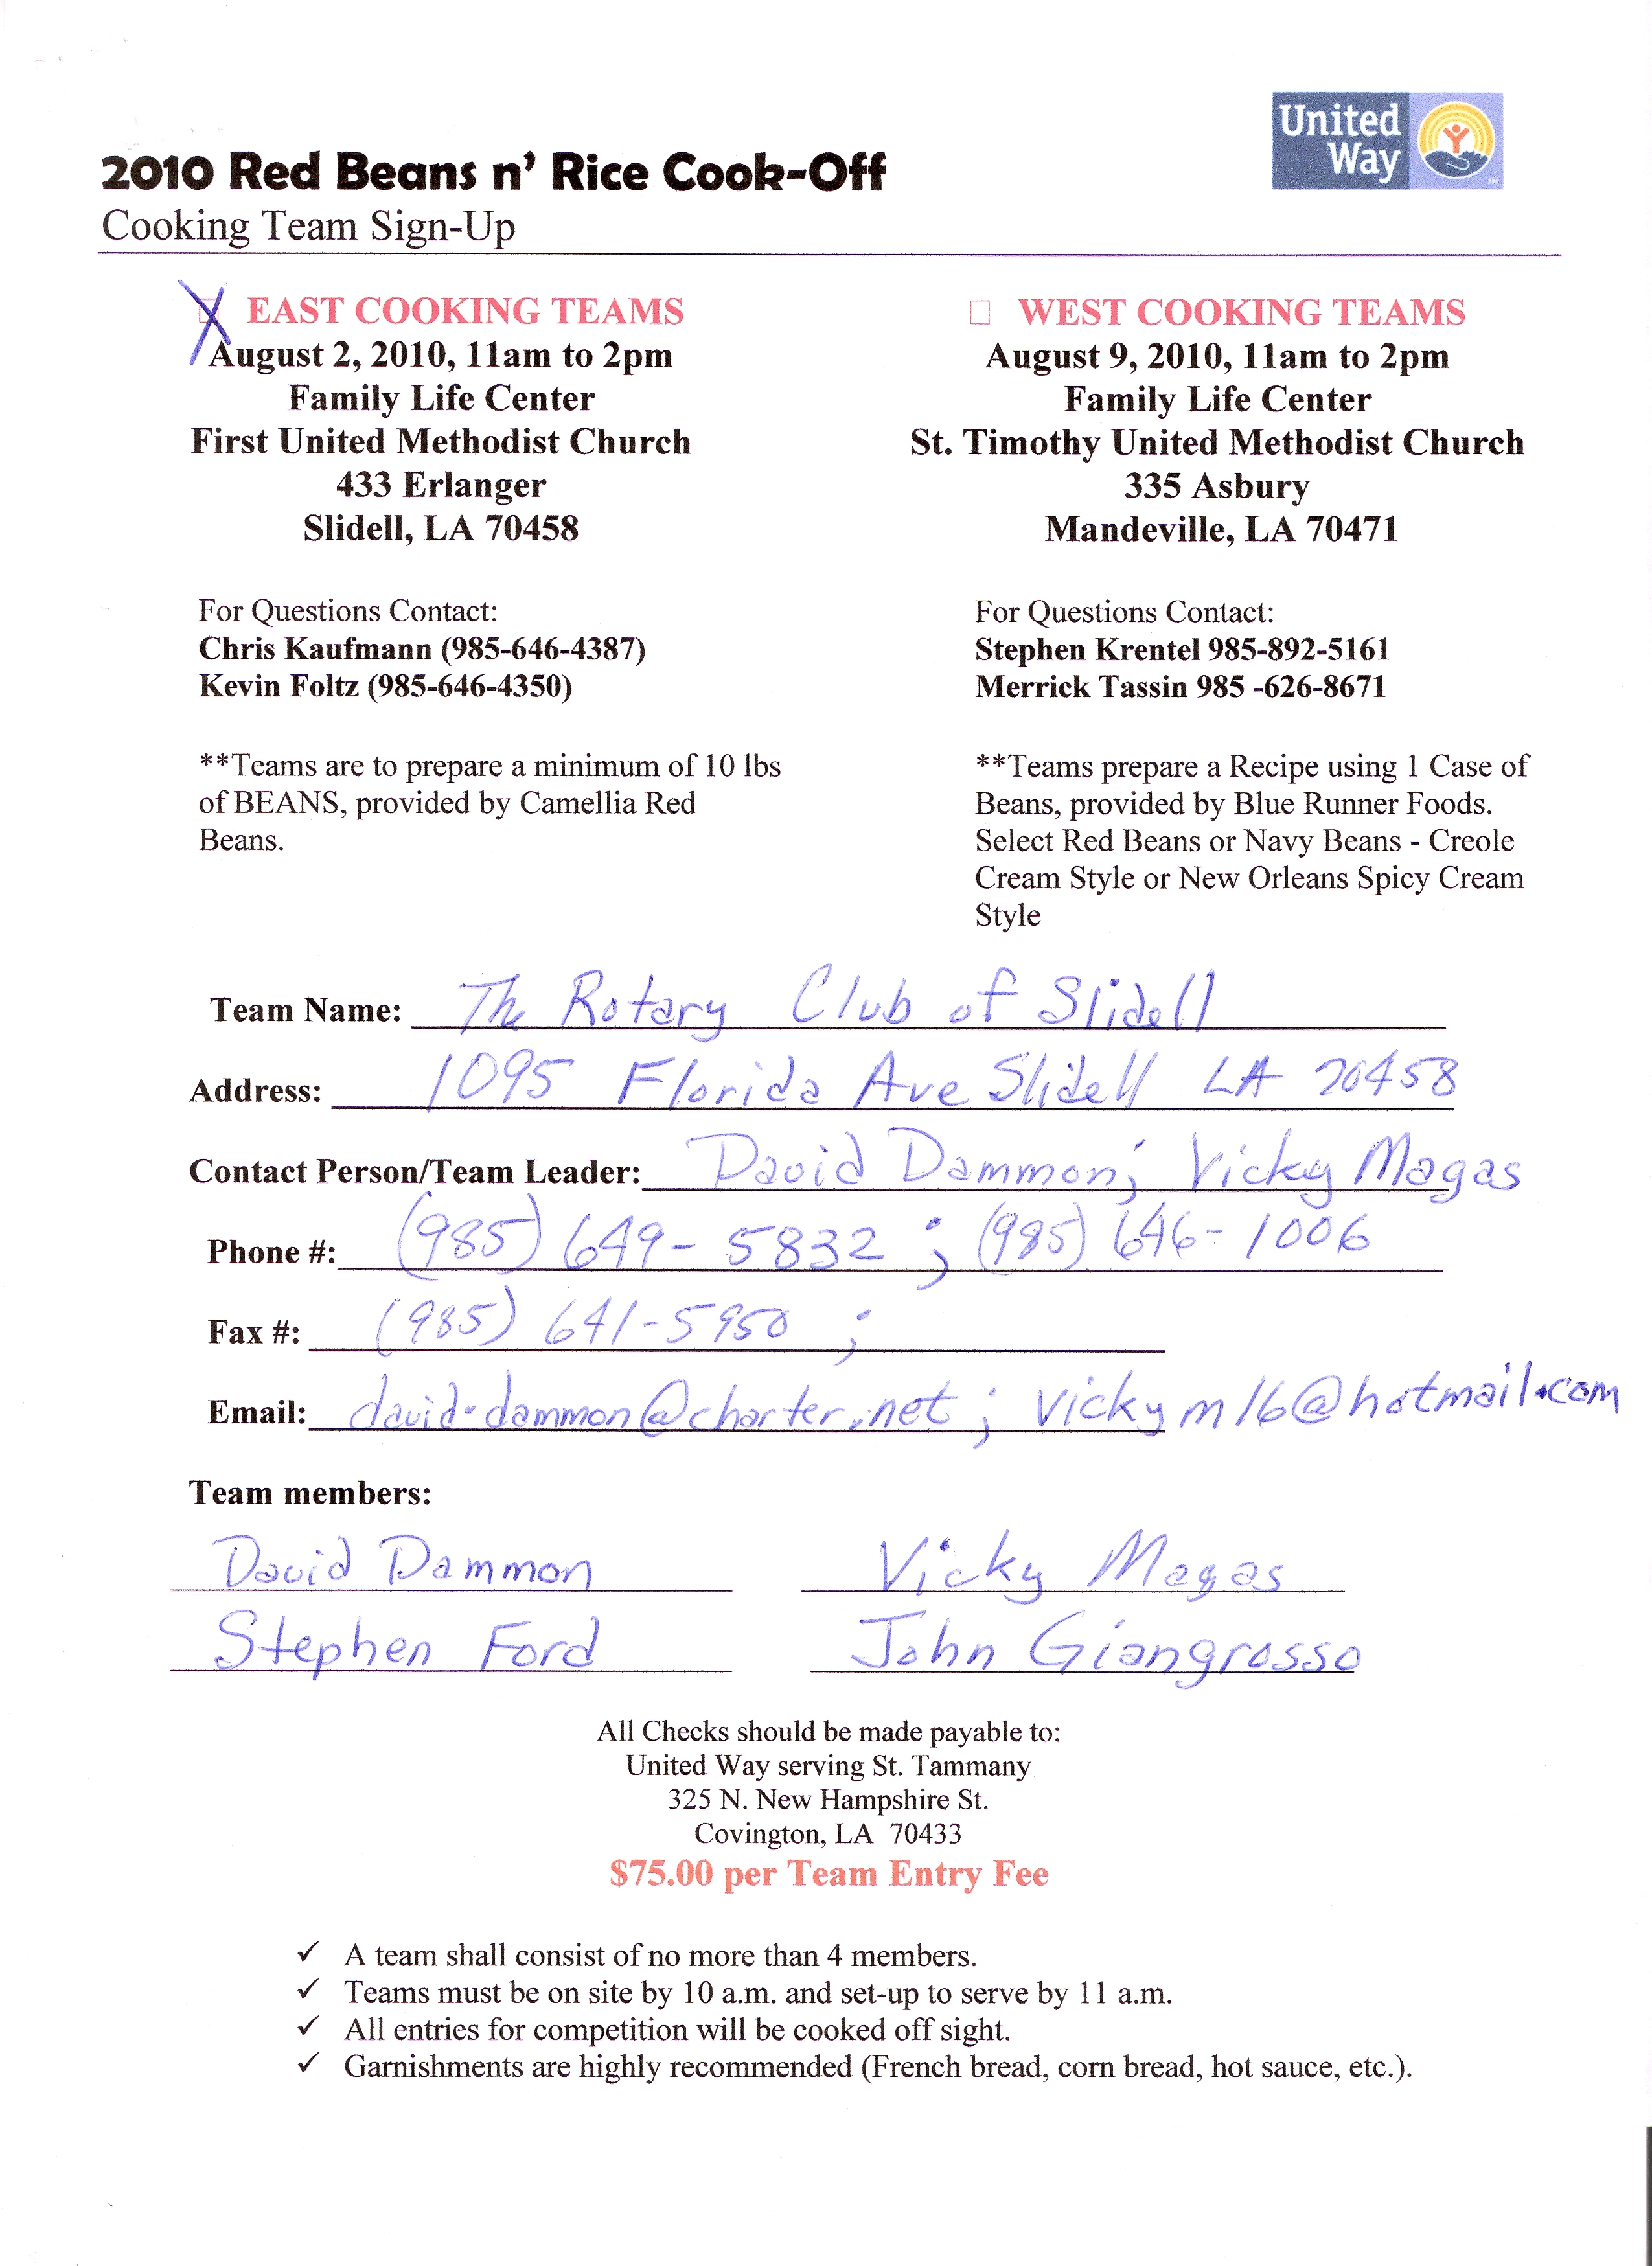 United Way
2010 Red Beans n' Rice Cook-Off
Cooking Team Sign-Up
EAST COOKING TEAMS
August 2, 2010, 11am to 2pm
Family Life Center
First United Methodist Church
433 Erlanger
Slidell, LA 70458
For Questions Contact:
Chris Kaufmann (985-646-4387)
Kevin Foltz (985-646-4350)
**Teams are to prepare a minimum of 10 lbs
of BEANS, provided by Camellia Red
Beans.
☐ WEST COOKING TEAMS
August 9, 2010, 11am to 2pm
Family Life Center
St. Timothy United Methodist Church
335 Asbury
Mandeville, LA 70471
For Questions Contact:
Stephen Krentel 985-892-5161
Merrick Tassin 985 -626-8671
**Teams prepare a Recipe using 1 Case of
Beans, provided by Blue Runner Foods.
Select Red Beans or Navy Beans - Creole
Cream Style or New Orleans Spicy Cream
Style
Team Name: The Rotary Club of Slidell
Address: 1095 Florida Ave Slidell LA 70458
Contact Person/Team Leader: David Dammon; Vicky Magas
Phone #: (985) 649-5832 ; (985) 646-1006
Fax #: (985) 641-5950 ;
Email: david-dammon@charter.net ; vickym16@hotmail.com
Team members:
David Dammon Vicky Magas
Stephen Ford John Giangrosso
All Checks should be made payable to:
United Way serving St. Tammany
325 N. New Hampshire St.
Covington, LA 70433
$75.00 per Team Entry Fee
✓ A team shall consist of no more than 4 members.
✓ Teams must be on site by 10 a.m. and set-up to serve by 11 a.m.
✓ All entries for competition will be cooked off sight.
✓ Garnishments are highly recommended (French bread, corn bread, hot sauce, etc.).